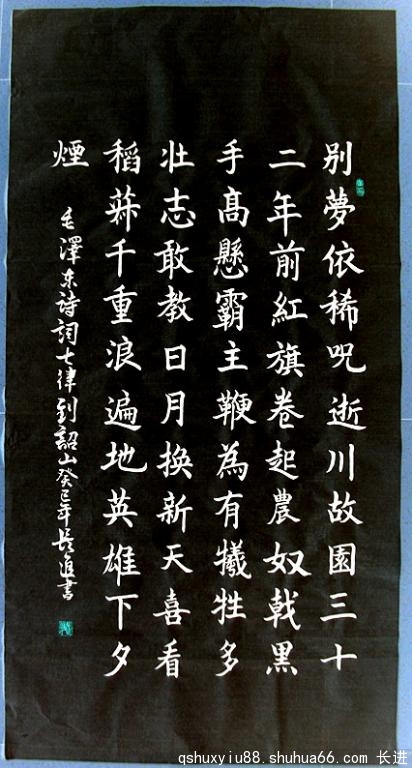 别夢依稀呪逝川故園三十
二年前紅旗卷起農奴戟黑
手髙懸霸主鞭為有犧牲多
壯志敢教日月換新天喜看
稻菽千重浪遍地英雄下夕
煙
毛澤东诗詞七律到韶山癸巳年長進書
qshuxyiu88.shuhua66.com 长进